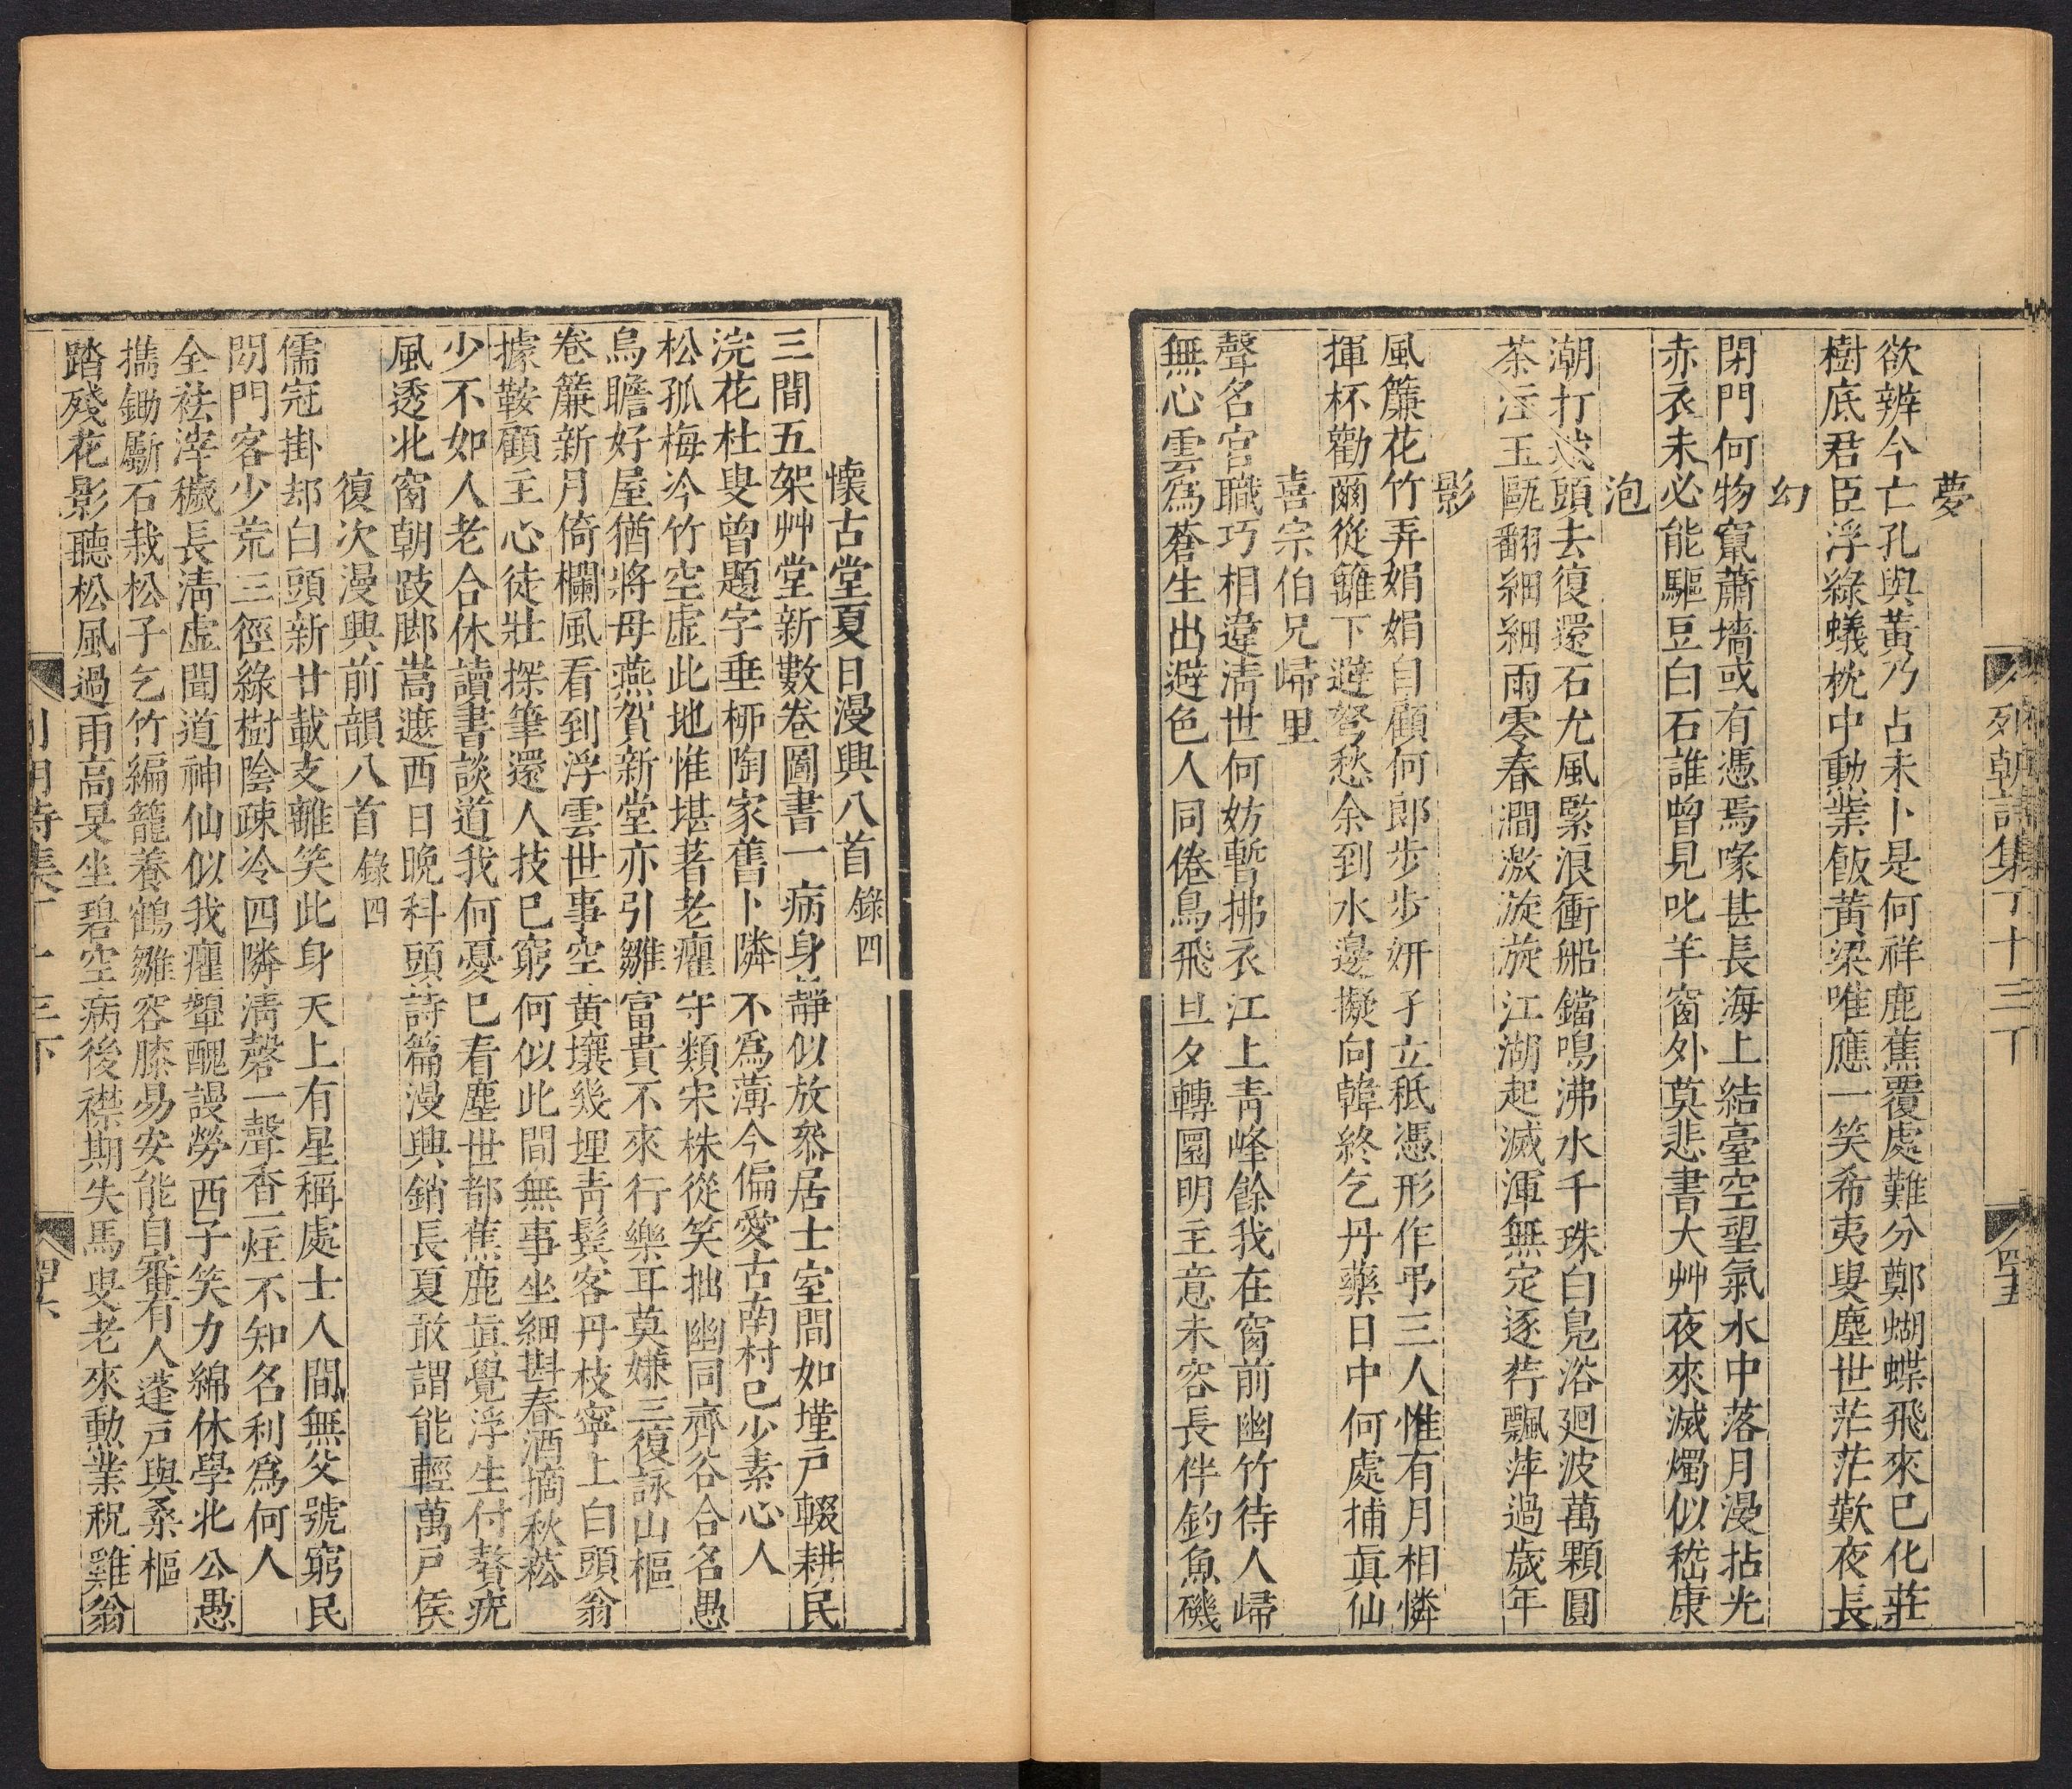 列朝詩集丁十三下
四五
夢
欲辨今亡孔與黃乃占未卜是何祥鹿蕉覆處難分鄭蝴蝶飛來已化莊
樹底君臣浮綠蟻枕中勳業飯黃粱唯應一笑希夷叟塵世茫茫歎夜長
幻
閉門何物竄蕭墻或有憑焉喙甚長海上結臺空望氣水中落月漫拈光
赤衣未必能驅豆白石誰曾見叱羊窗外莫悲書大艸夜來滅燭似嵇康
泡
潮打頭去復還石尤風緊浪衝船鐺鳴沸水千珠白鳧浴廻波萬顆圓
茶玉甌翻細細雨零春澗激漩漩江湖起滅渾無定逐荇飄萍過歲年
影
風簾花竹弄娟娟自顧何郎步步妍孑立秖憑形作弔三人惟有月相憐
揮杯勸爾從籬下避弩愁余到水邊擬向韓終乞丹藥日中何處捕眞仙
喜宗伯兄歸里
聲名宮職巧相違淸世何妨暫拂衣江上靑峰餘我在窗前幽竹待人歸
無心雲爲蒼生出避色人同倦鳥飛旦夕轉圜明主意未容長伴釣魚磯
懷古堂夏日漫興八首 錄四
三間五架艸堂新數卷圖書一病身靜似放叅居士室間如墐戶輟耕民
浣花杜叟曾題字垂桞陶家舊卜隣不爲薄今偏愛古南村已少素心人
松孤梅冷竹空虛此地惟堪著老癯守類宋株從笑拙幽同齊谷合名愚
烏瞻好屋猶將母燕賀新堂亦引雛富貴不來行樂耳莫嫌三復詠山樞
卷簾新月倚欄風看到浮雲世事空黃壤幾埋靑鬂客丹枝寧上白頭翁
據鞍顧主心徒壯探筆還人技已窮何似此間無事坐細斟春酒摘秋菘
少不如人老合休讀書談道我何憂已看塵世都蕉鹿眞覺浮生付贅疣
風透北窗朝跂脚嵩遮西日晚科頭詩篇漫興銷長夏敢謂能輕萬戶侯
復次漫興前韻八首 錄四
儒冠掛却白頭新廿載支離笑此身天上有星稱處士人間無父號窮民
閉門客少荒三徑綠樹陰疎冷四隣淸磬一聲香一炷不知名利爲何人
全袪滓穢長淸虛聞道神仙似我癯顰醜謾勞西子笑力綿休學北公愚
擕鋤斸石栽松子乞竹編籠養鶴雛容膝易安能自審有人蓬戶與桑樞
踏殘花影聽松風過雨高旻坐碧空病後襟期失馬叟老來勳業稅雞翁
列朝詩集丁十三下
四六